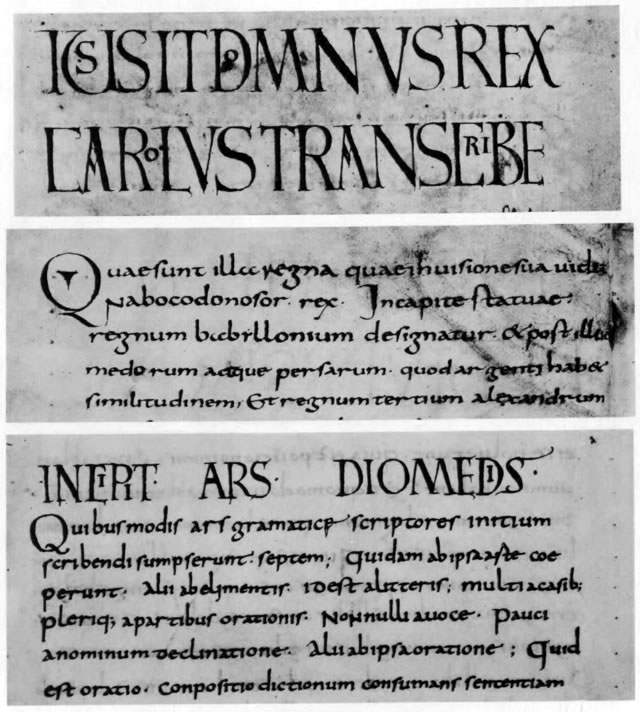 IUSSIT DOMNVS REX
CAROLVS TRANSCRIBE
Quae sunt illa regna quae in uisione sua uidit
Nabocodonosor. rex. In capite statuae:
regnum babyllonium designatur. & post illud
medorum atque persarum. quod argenti hab&
similitudinem; Et regnum tertium alexandrum
·INCIPIT· ARS· DIOMEDIS·
Quibus modis ars gramaticę scriptores initium
scribendi sumpserunt. septem; Quidam ab ipsa arte coe
perunt. Alii ab elimentis. id est a litteris; multi a casib;
pleriq; a partibus orationis. Nonnulli a uoce. Pauci
a nominum declinatione. Alii ab ipsa oratione; Quid
est oratio. Conpositio dictionum consumans sententiam